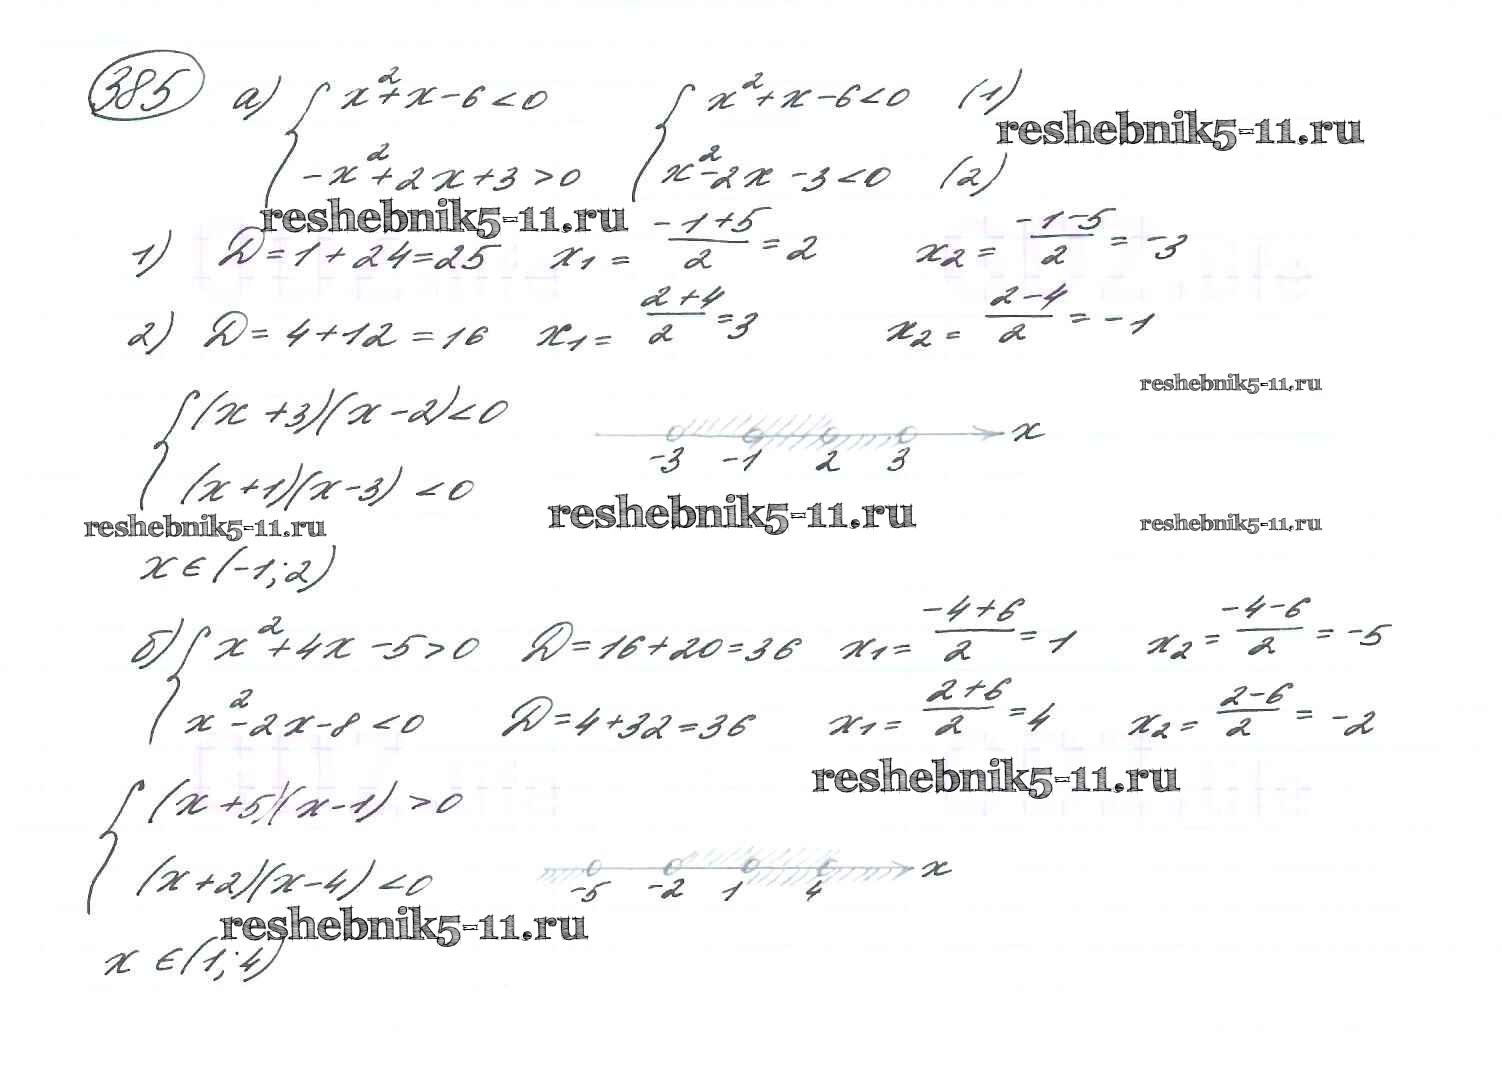 385 а) { x²+x-6<0 { x²+x-6<0 (1)
reshebnik5-11.ru
-x²+2x+3>0 x²-2x-3<0 (2)
reshebnik5-11.ru
1) D=1+24=25 x₁= (-1+5)/2 =2 x₂= (-1-5)/2 = -3
2) D= 4+12=16 x₁= (2+4)/2 =3 x₂= (2-4)/2 = -1
reshebnik5-11.ru
{ (x+3)(x-2)<0
-3 -1 2 3 x
(x+1)(x-3)<0
reshebnik5-11.ru reshebnik5-11.ru reshebnik5-11.ru
x∈(-1;2)
б) { x²+4x-5>0 D=16+20=36 x₁= (-4+6)/2 =1 x₂= (-4-6)/2 = -5
x²-2x-8<0 D=4+32=36 x₁= (2+6)/2 =4 x₂= (2-6)/2 = -2
reshebnik5-11.ru
{ (x+5)(x-1)>0
(x+2)(x-4)<0
-5 -2 1 4 x
reshebnik5-11.ru
x∈(1;4)